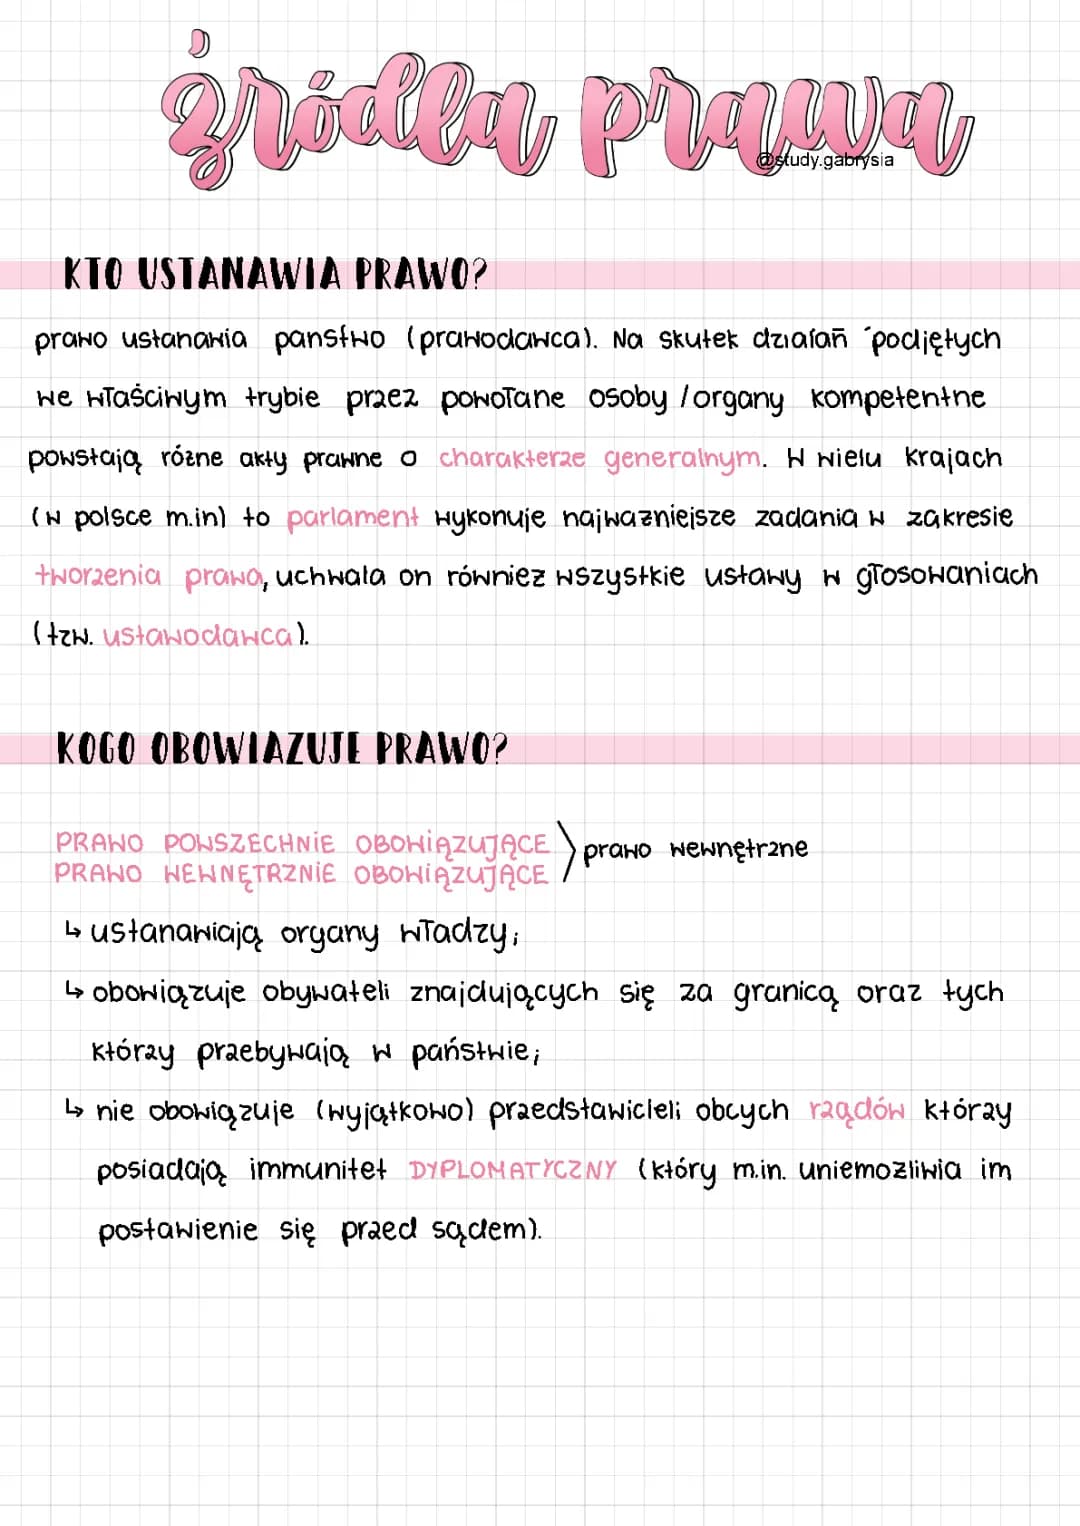 źródła prawa
@study.gabrysia
KTO USTANAWIA PRAWO?
prawo ustanawia państwo (prawodawca). Na skutek działań podjętych
we właściwym trybie przez powołane osoby /organy kompetentne
powstają różne akty prawne o charakterze generalnym. W wielu krajach
(w polsce m.in) to parlament wykonuje najważniejsze zadania w zakresie
tworzenia prawa, uchwala on również wszystkie ustawy w głosowaniach
(tzw. ustawodawca).
KOGO OBOWIAZUJE PRAWO?
PRAWO POWSZECHNIE OBOWIĄZUJĄCE
PRAWO WEWNĘTRZNIE OBOWIĄZUJĄCE
prawo wewnętrzne
↳ ustanawiają organy władzy;
↳ obowiązuje obywateli znajdujących się za granicą oraz tych
którzy przebywają w państwie;
↳ nie obowiązuje (wyjątkowo) przedstawicieli obcych rządów którzy
posiadają immunitet DYPLOMATYCZNY (który m.in. uniemożliwia im
postawienie się przed sądem).